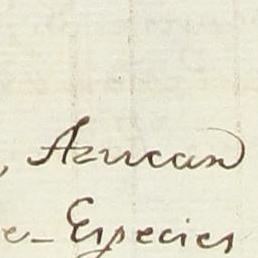 , Azucar
e- Especies